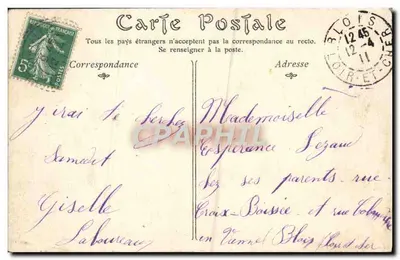 Carte Postale
Tous les pays étrangers n'acceptent pas la correspondance au recto.
Se renseigner à la poste.
Correspondance
Adresse
5c
BLOIS
12 45
12 - 4
11
LOIR-ET-CHER
CPARAMA
j'irai te
Samedi
Giselle
Laboureau
Mademoiselle
Espérance
chez ses parents rue
Croix-Boissée et rue
en Vienne Blois Loir et Cher